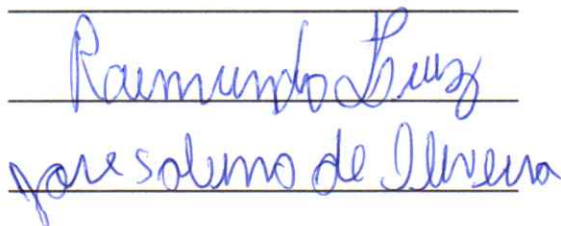 Raimundo Luiz
jose Solimo de Oliveira